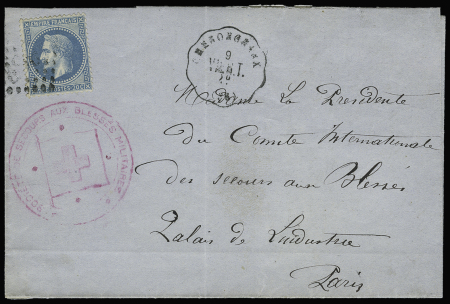 EMPIRE FRANÇAIS
POSTES 20 C
9
SOCIÉTÉ DE SECOURS AUX BLESSÉS MILITAIRES
Madame La Presidente
du Comite Internationale
des secours aux Blessés
Palais de Lindustrie
Paris